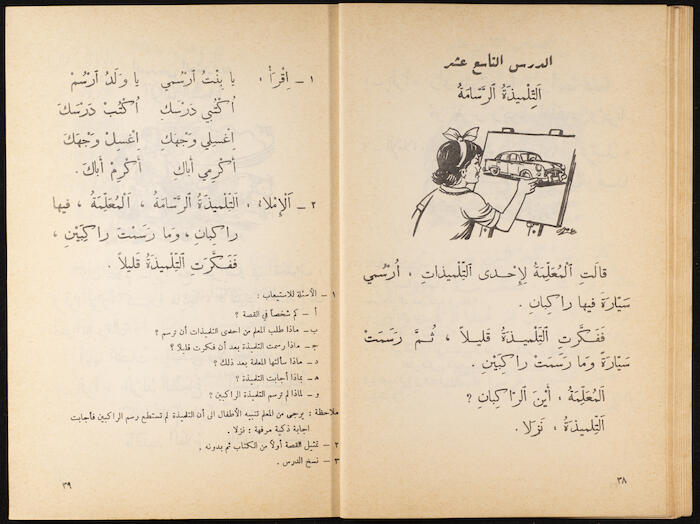 الدرس التاسع عشر
اَلتِّلْميذَةُ اَلرَّسَّامَةُ
قالَتِ اَلْمُعَلِّمَةُ لِإِحْدى اَلتِّلْميذاتِ ، أُرْسُمي
سَيّارَةً فيها راكِبانِ .
فَفَكَّرَتِ اَلتِّلْميذَةُ قَليلاً ، ثُمَّ رَسَمَتْ
سَيّارَةً وَما رَسَمَتْ راكِبَيْنِ .
اَلْمُعَلِّمَةُ ، أَيْنَ اَلرّاكِبانِ ؟
اَلتِّلْميذَةُ ، نَزَلا .
٣٨
١ - اِقْرَأْ ، يا بِنْتُ اُرْسُمي يا وَلَدُ اُرْسُمْ
اُكْتُبي دَرْسَكِ اُكْتُبْ دَرْسَكَ
اِغْسِلي وَجْهَكِ اِغْسِلْ وَجْهَكَ
أَكْرِمي أَباكِ أَكْرِمْ أَباكَ .
٢ - اَلْإِمْلاءُ ، اَلتِّلْميذَةُ اَلرَّسَّامَةُ ، اَلْمُعَلِّمَةُ ، فيها
راكِبانِ ، وَما رَسَمَتْ راكِبَيْنِ ،
فَفَكَّرَتِ اَلتِّلْميذَةُ قَليلاً .
١ - الأسئلة للاستيعاب :
أ - كم شخصاً في القصة ؟
ب - ماذا طلب المعلم من احدى التلميذات أن ترسم ؟
ج - ماذا رسمت التلميذة بعد أن فكرت قليلاً ؟
د - ماذا سألتها المعلمة بعد ذلك ؟
ه - بماذا أجابت التلميذة ؟
و - لماذا لم ترسم التلميذة الراكبين ؟
ملاحظة : يرجى من المعلم تنبيه الأطفال الى أن التلميذة لم تستطع رسم الراكبين فأجابت
اجابة ذكية مرفهة : نزلا .
٢ - تمثيل القصة أولاً من الكتاب ثم بدونه .
٣ - نسخ الدرس .
٣٩